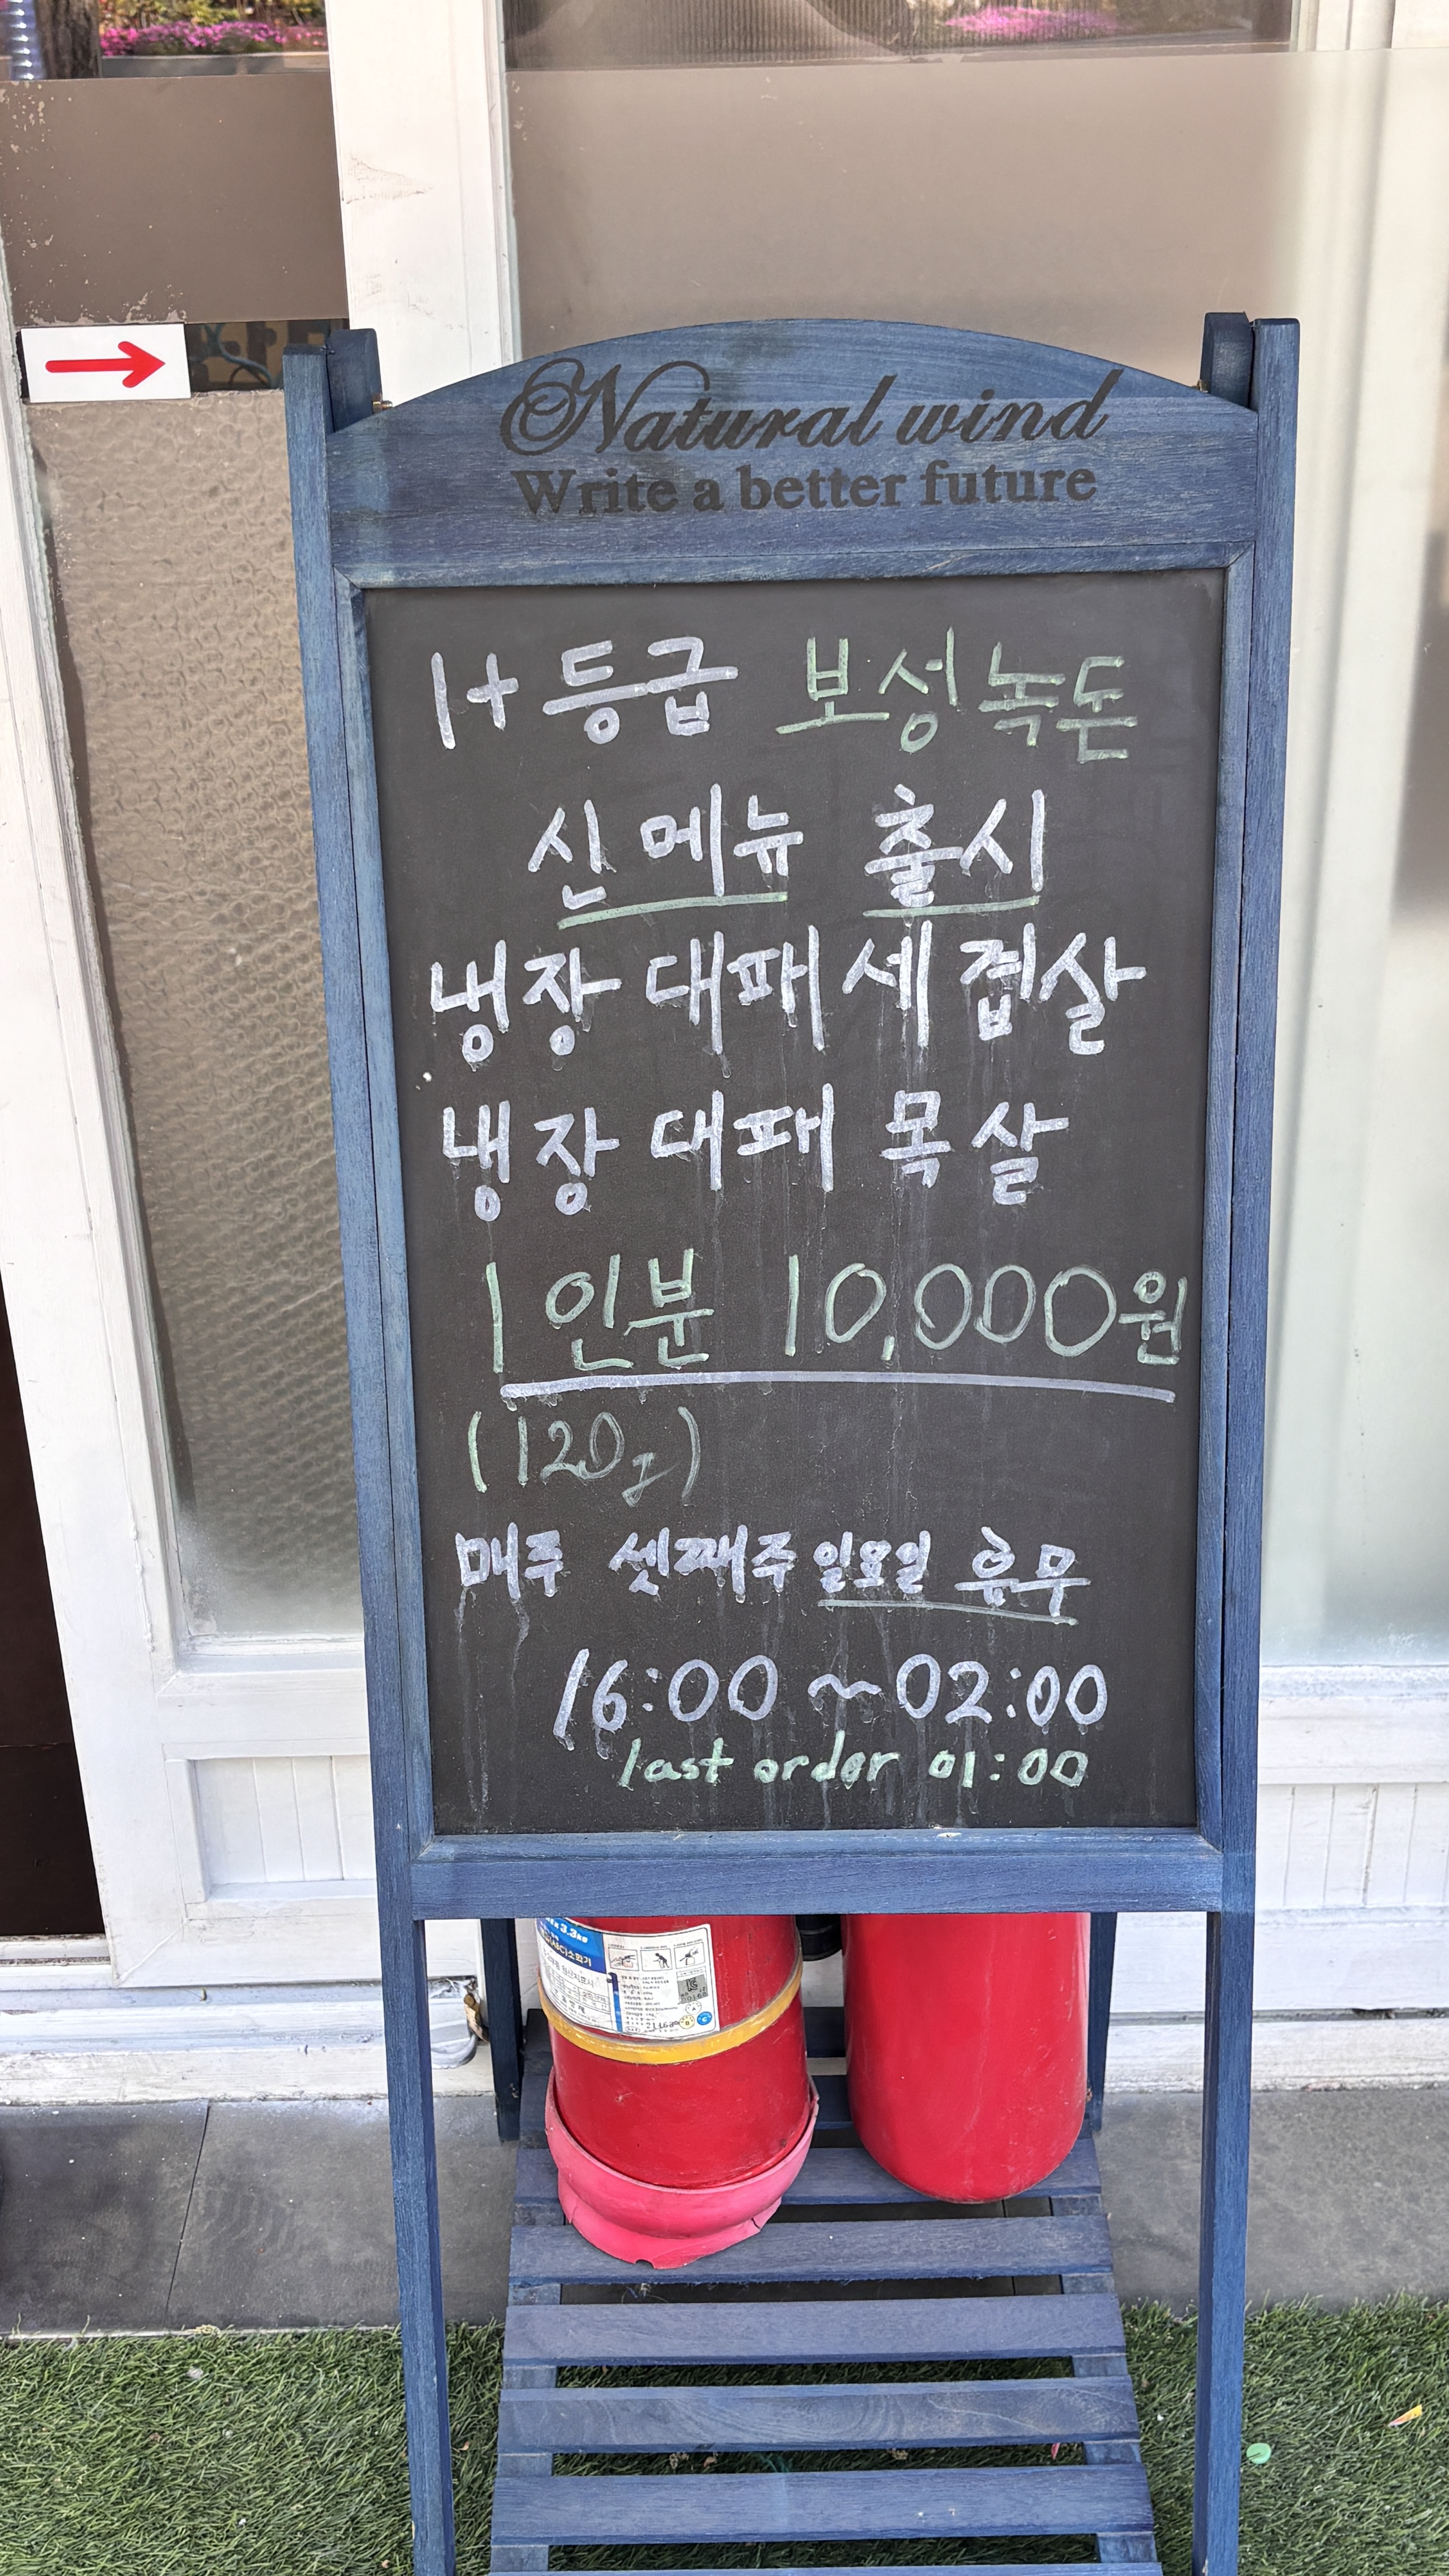 Natural wind
Write a better future
1+ 등급 보성녹돈
신메뉴 출시
냉장 대패 세겹살
냉장 대패 목살
1인분 10,000원
(120g)
매주 셋째주 일요일 휴무
16:00 ~ 02:00
last order 01:00
3.3kg
소화기